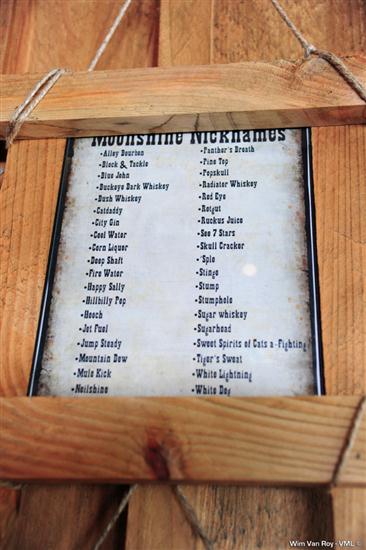 Moonshine Nicknames
•Alley Bourbon
•Block & Tackle
•Blue John
•Buckeye Bark Whiskey
•Bush Whiskey
•Catdaddy
•City Gin
•Cool Water
•Corn Liquor
•Deep Shaft
•Fire Water
•Happy Sally
•Hillbilly Pop
•Hooch
•Jet Fuel
•Jump Steady
•Mountain Dew
•Mule Kick
•Panther's Breath
•Pine Top
•Popskull
•Radiator Whiskey
•Red Eye
•Rotgut
•Ruckus Juice
•See 7 Stars
•Skull Cracker
•'Splo
•Stingo
•Stump
•Stumphole
•Sugar whiskey
•Sugarhead
•Sweet Spirits of Cats a-Fighting
•Tiger's Sweat
•White Lightning
•White Dog
Wim Van Roy - VML ©